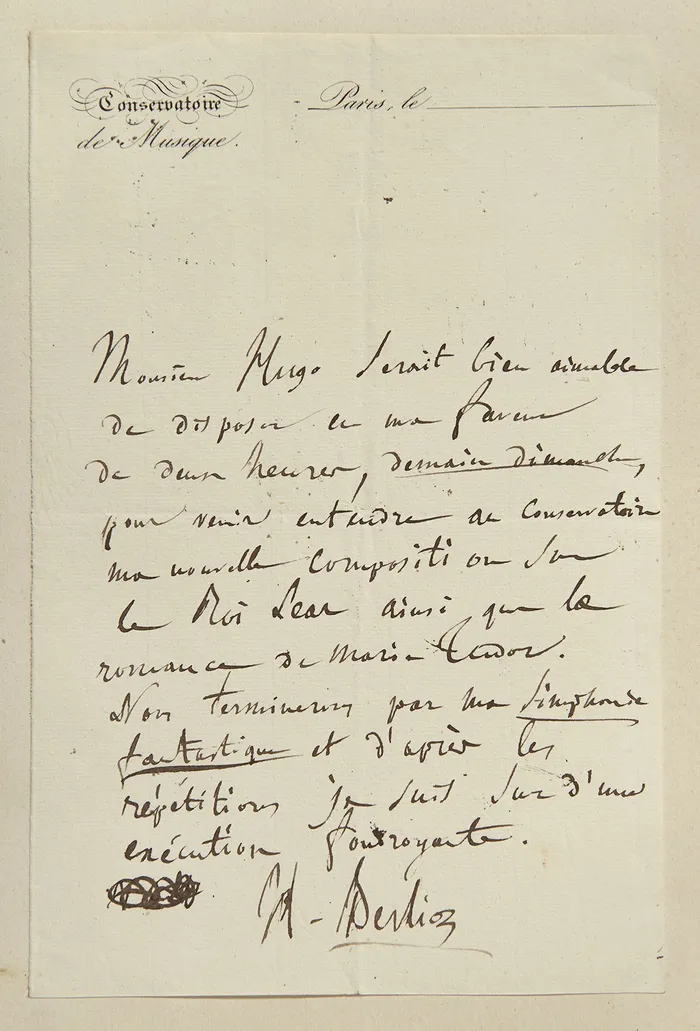 Conservatoire
de Musique.
Paris, le
Monsieur Hugo serait bien aimable
de disposer en ma faveur
de deux heures, demain dimanche,
pour venir entendre au Conservatoire
ma nouvelle composition sur
le Roi Lear ainsi que la
romance de Marie Tudor.
Nous terminerons par ma Simphonie
fantastique et d'après les
répétitions je suis sur d'une
exécution foudroyante.
H. Berlioz